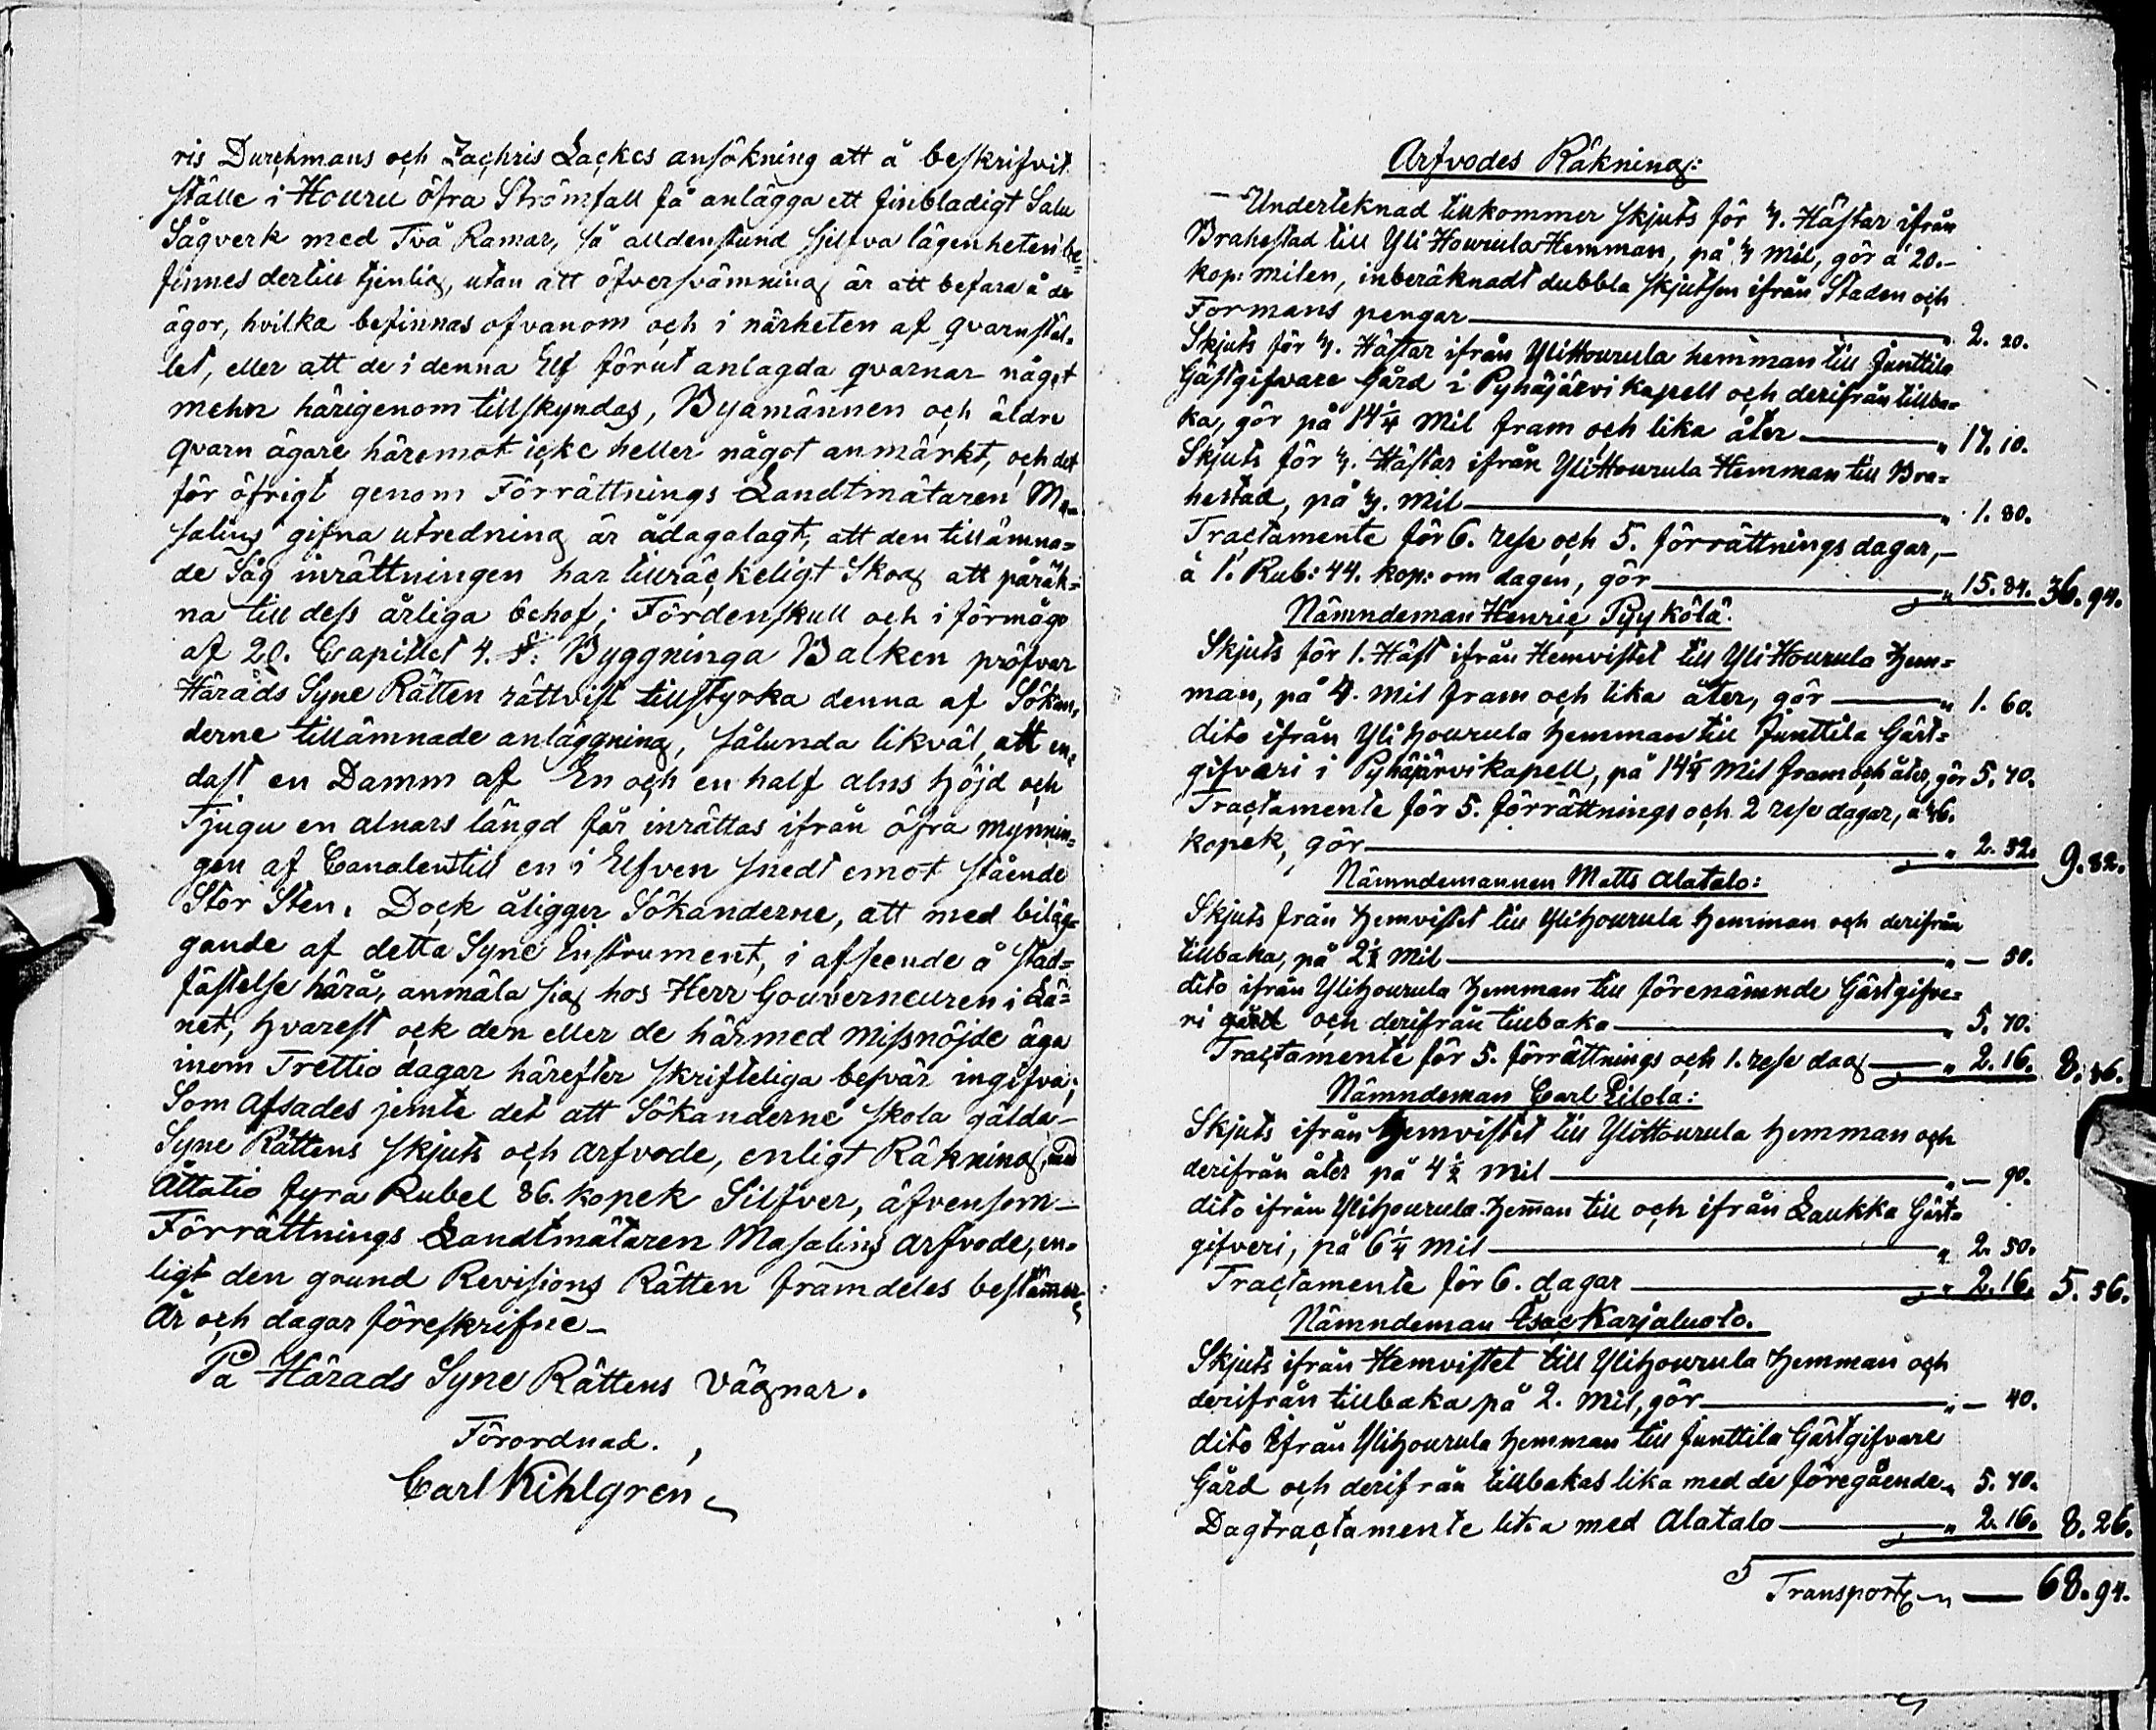 ris Durchmans och Zachris Lackes ansökning att å beskrifvit
ställe i Houru öfra Strömfall få anlägga ett finbladigt Salu
Sågverk med Två Ramar, så alldenstund sjelfva lägenheten be=
finnes dertill tjenlig, utan att öfversvämning är att befara å de
ägor, hvilka befinnas ofvanom och i närheten af qvarnstäl=
let, eller att de i denna Elf förut anlagda qvarnar något
mehn härigenom tillskyndas, Byamännen och äldre
qvarn ägare häremot icke heller något anmärkt, och det
för öfrigt genom Förrättnings Landtmätaren Ma=
salins gifna utredning är ådagalagt, att den tillämna=
de Såg inrättningen har tillräckeligt Skog att påräk=
na till dess årliga behof; Fördenskull och i förmågo
af 20. Capitlet 4. §: Byggninga Balken pröfvar
Härads Syne Rätten rättvist tillstyrka denna af Sökan=
derne tillämnade anläggning, sålunda likväl, att en=
dast en Damm af En och en half alns höjd och
Tjugu en alnars längd får inrättas ifrån öfra mynnin=
gen af Canalen till en i Elfven snedt emot stående
Stor Sten. Dock åligger Sökanderne, att med biläg=
gande af detta Syne Instrument, i afseende å stad=
fästelse härå, anmäla sig hos Herr Gouverneuren i Lä=
net, hvarest ock den eller de härmed missnöjde äga
inom Trettio dagar härefter skrifteliga besvär ingifva;
Som afsades jemte det att Sökanderne skola gälda
Syne Rättens skjuts och arfvode, enligt Räkning, med
Åttatio fyra Rubel 86. kopek Silfver, äfvensom
Förrättnings Landtmätaren Masalins arfvode, en=
ligt den grund Revisions Rätten framdeles bestämmer,
År och dagar föreskrifne
På Härads Syne Rättens vägnar.
Förordnad.
Carl Kihlgren
Arfvodes Räkning:
Undertecknad tillkommer skjuts för 2. Hästar ifrån
Brahestad till Yli Hourula Hemman, på 4 Mil, gör á 20.
kop: milen, inberäknadt dubbla skjutsen ifrån Staden och
Formans pengar 2. 20.
Skjuts för 2. Hästar ifrån Yli Hourula hemman till Junttila
Gästgifvare Gård i Pyhäjärvi Kapell och derifrån tillba=
ka, gör på 14 1/4 Mil fram och lika åter " 17. 10.
Skjuts för 2. Hästar ifrån Yli Hourula Hemman till Bra=
hestad, på 4. Mil " 1. 80.
Tractamente för 6. rese och 5. förrättnings dagar,
á 1. Rub: 44. kop: om dagen, gör " 15. 84. 36. 94.
Nämndeman Henric Pyykölä:
Skjuts för 1. Häst ifrån Hemvistet till Yli Hourula Hem=
man, på 4. Mil fram och lika åter, gör " 1. 60.
dito ifrån Yli Hourula Hemman till Junttila Gäst=
gifveri i Pyhäjärvi kapell, på 14 1/4 Mil fram och åter, gör 5. 70.
Tractamente för 5. förrättnings och 2 rese dagar, á 36.
kopek, gör " 2. 52. 9. 82.
Nämndemannen Matts Alatalo:
Skjuts från Hemvistet till Yli Hourula Hemman och derifrån
tillbaka, på 2 1/2 Mil " — 50.
dito ifrån Yli Hourula Hemman till förenämnde Gästgifve=
ri gård och derifrån tillbaka " 5. 70.
Tractamente för 5. förrättnings och 1. rese dag " 2. 16. 8. 36.
Nämndeman Carl Eilola:
Skjuts ifrån Hemvistet till Yli Hourula hemman och
derifrån åter på 4 1/2 Mil " — 90.
dito ifrån Yli Hourula Hemman till och ifrån Laukka Gäst=
gifveri, på 6 1/4 Mil " 2. 50.
Tractamente för 6. dagar " 2. 16. 5. 56.
Nämndeman Esac Karjaluoto.
Skjuts ifrån Hemvistet till Yli Hourula Hemman och
derifrån tillbaka på 2. Mil, gör " — 40.
dito ifrån Yli Hourula hemman till Junttila Gästgifvare
Gård och derifrån tillbakas lika med de föregående " 5. 70.
Dagtractamente lika med Alatalo " 2. 16. 8. 26.
Transport " — 68. 94.